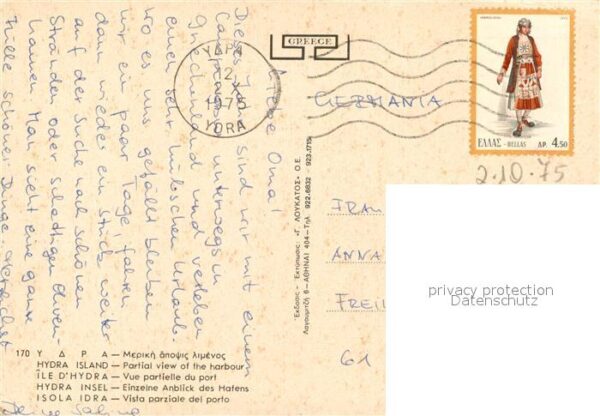 Liebe Oma!
Dieses Jahr sind wir mit einem
unterwegs in
Griechenland und verleben
einen sehr hübschen Urlaub.
Wo es uns gefällt bleiben
wir ein paar Tage, fahren
dann wieder ein Stück weiter
auf der Suche nach schönen
Stränden oder schattigen Oliven-
hainen. Man sieht eine ganze
schöner Dinge. Herzlichst
GREECE
ΥΔΡΑ
YDRA
GERMANIA
ΕΛΛΑΣ - HELLAS ΔΡ. 4.50
2.10.75
FRAU
ANNA
FREI
61
Εκδοσις - Εκτύπωσις: «Γ. ΛΟΥΚΑΤΟΣ» Ο.Ε.
6 - ΑΘΗΝΑΙ 404 - Τηλ. 922.6832 923.1715
privacy protection
Datenschutz
170 Υ Δ Ρ Α — Μερική άποψις λιμένος
HYDRA ISLAND — Partial view of the harbour
ÎLE D'HYDRA — Vue partielle du port
HYDRA INSEL — Einzelne Anblick des Hafens
ISOLA IDRA — Vista parziale del porto